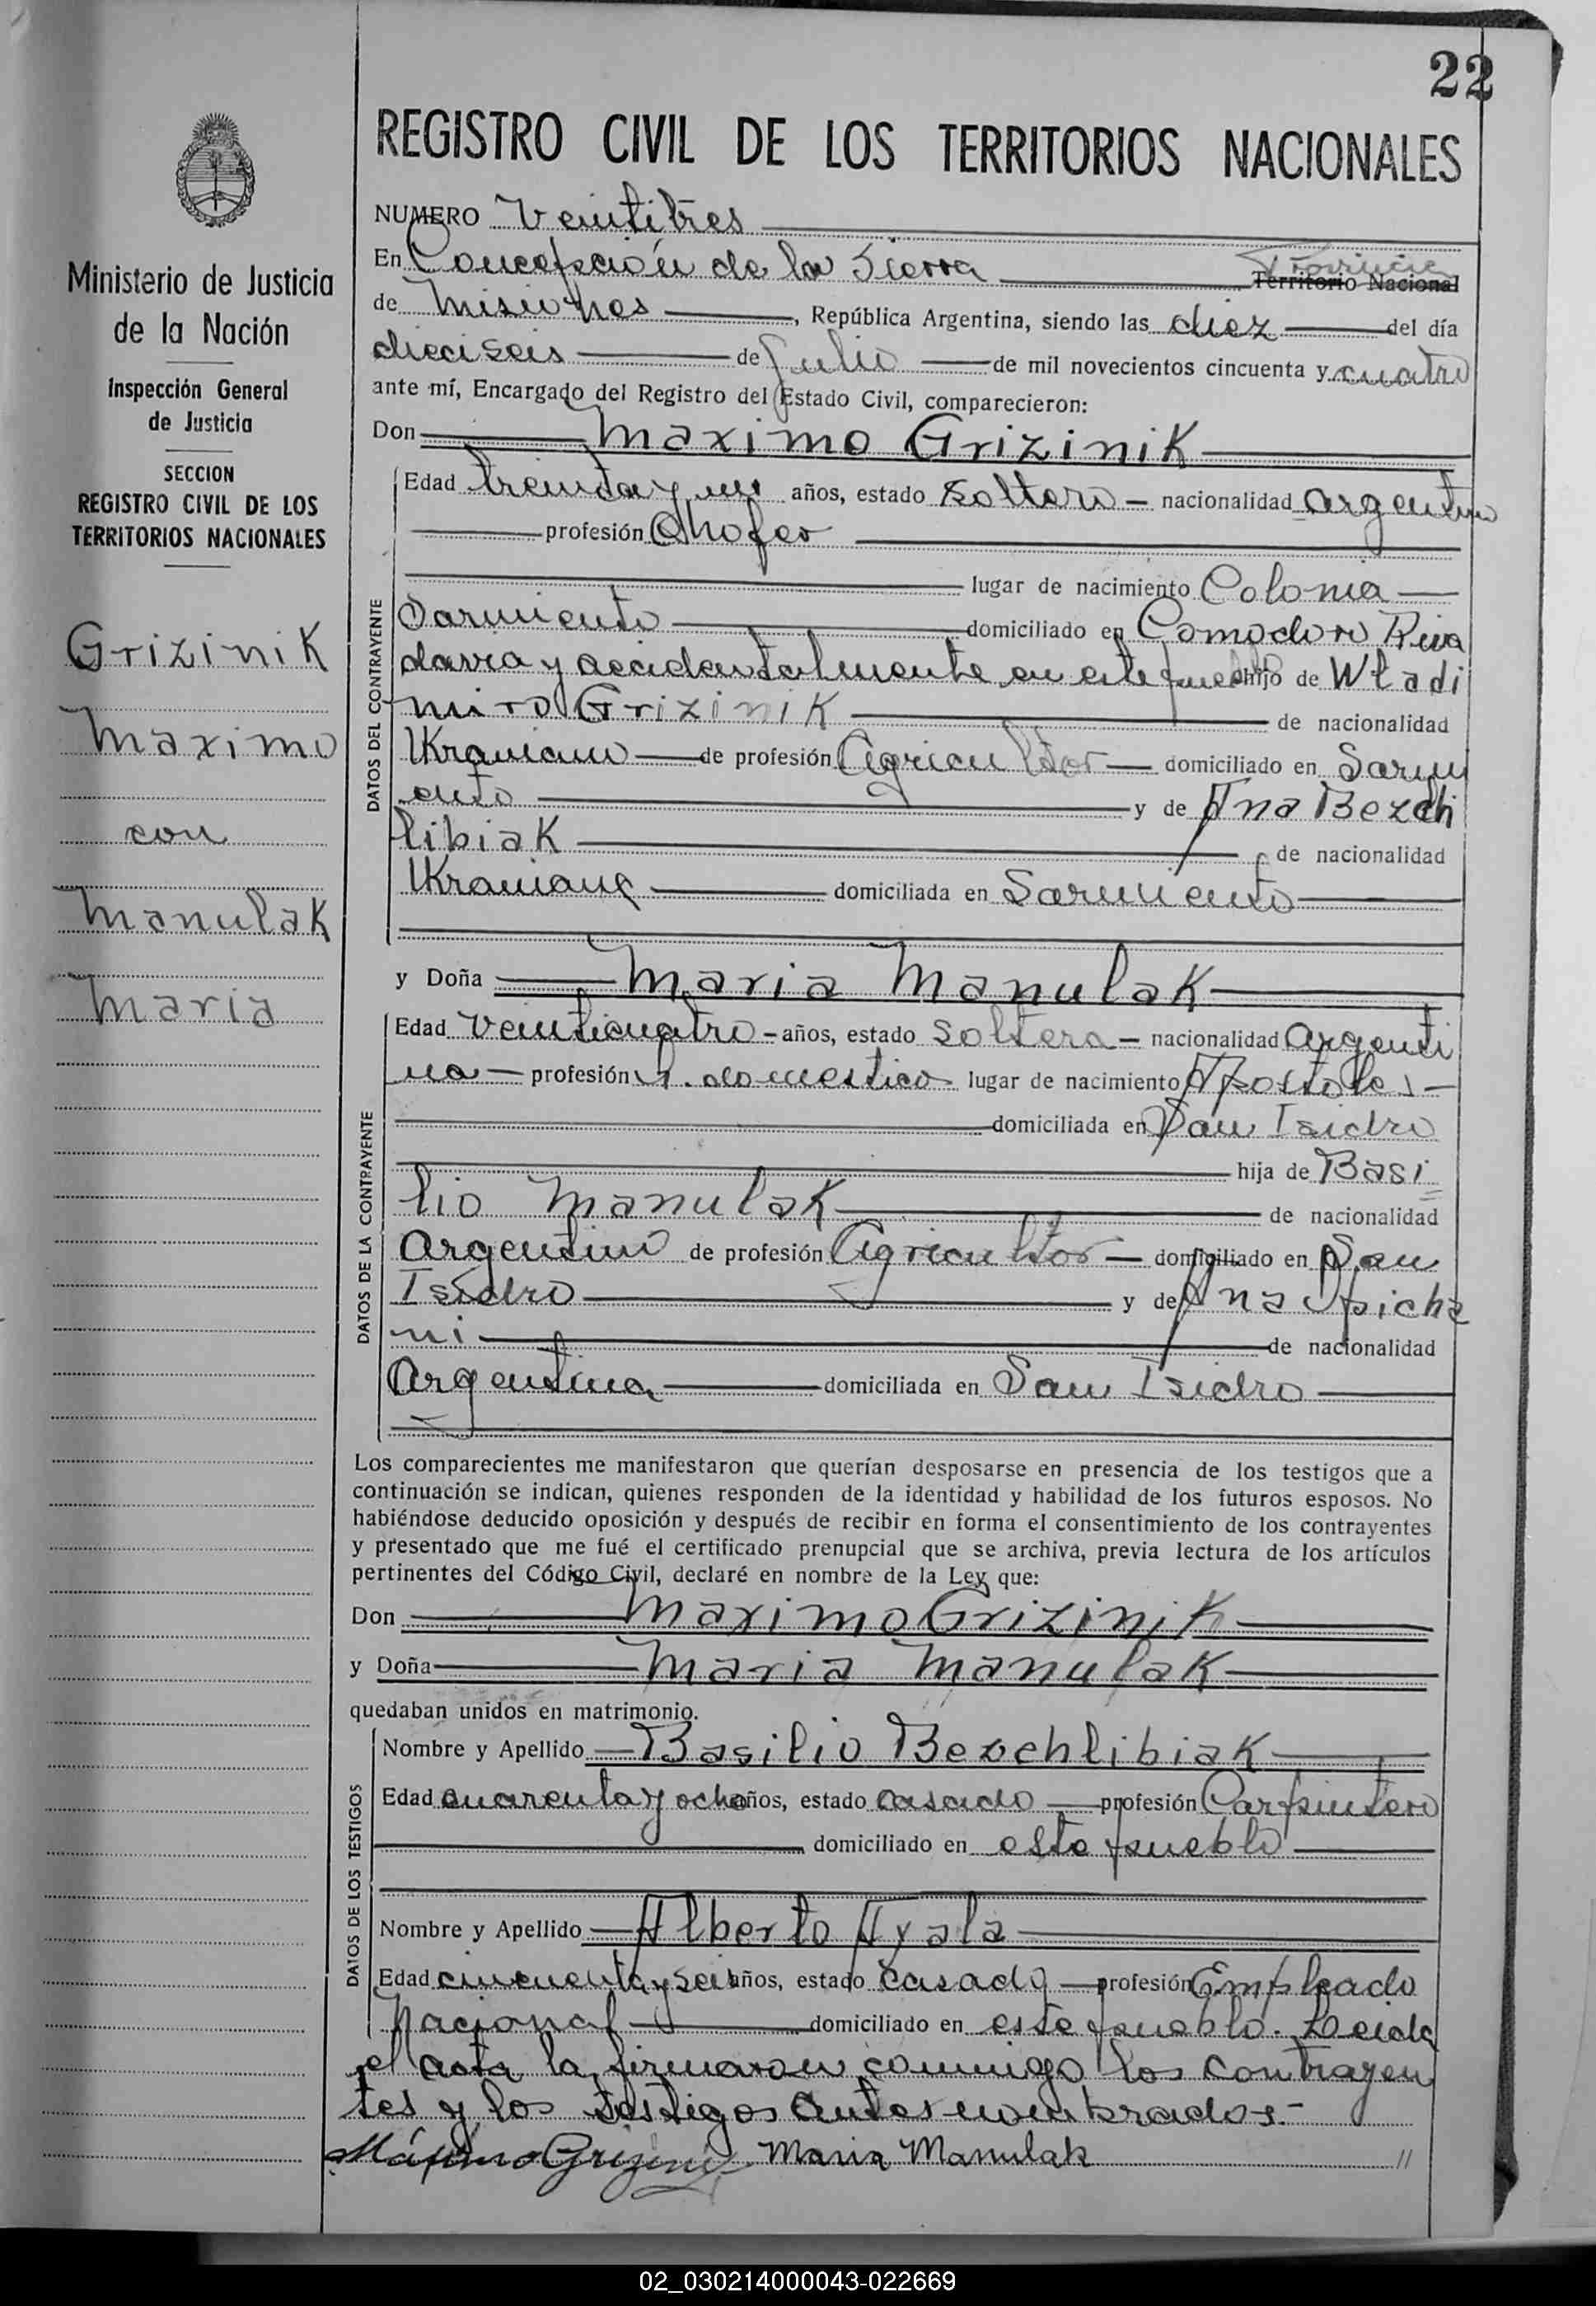 22
REGISTRO CIVIL DE LOS TERRITORIOS NACIONALES
NUMERO Veintitres
En Concepción de la Sierra Provincia Territorio Nacional
de Misiones, República Argentina, siendo las diez del día
dieciseis de Julio de mil novecientos cincuenta y cuatro
ante mí, Encargado del Registro del Estado Civil, comparecieron:
Don Maximo Grizinik
Edad treinta y un años, estado soltero nacionalidad argentino
profesión Chofer
lugar de nacimiento Colonia
Sarmiento domiciliado en Comodoro Riva
davia y accidentalmente en este pueblo hijo de Wladi
miro Grizinik de nacionalidad
Ukraniano de profesión Agricultor domiciliado en Sarmi
ento y de Ana Bezch
libiak de nacionalidad
Ukraniana domiciliada en Sarmiento
y Doña Maria Manulak
Edad veinticuatro años, estado soltera nacionalidad argenti
na profesión s. domestico lugar de nacimiento Apostoles
domiciliada en San Isidro
hija de Basi
lio Manulak de nacionalidad
Argentino de profesión Agricultor domiciliado en San
Isidro y de Ana
de nacionalidad
Argentina domiciliada en San Isidro
Los comparecientes me manifestaron que querían desposarse en presencia de los testigos que a
continuación se indican, quienes responden de la identidad y habilidad de los futuros esposos. No
habiéndose deducido oposición y después de recibir en forma el consentimiento de los contrayentes
y presentado que me fué el certificado prenupcial que se archiva, previa lectura de los artículos
pertinentes del Código Civil, declaré en nombre de la Ley que:
Don Maximo Grizinik
y Doña Maria Manulak
quedaban unidos en matrimonio.
Nombre y Apellido Basilio Bezchlibiak
Edad cuarenta y ocho años, estado casado profesión Carpintero
domiciliado en este pueblo
Nombre y Apellido Alberto Ayala
Edad cincuenta y seis años, estado casado profesión Empleado
Nacional domiciliado en este pueblo. Leida
el acta la firmaron conmigo los contrayen
tes y los testigos antes nombrados.-
Máximo Maria Manulak //
DATOS DEL CONTRAYENTE
DATOS DE LA CONTRAYENTE
DATOS DE LOS TESTIGOS
Ministerio de Justicia
de la Nación
Inspección General
de Justicia
SECCION
REGISTRO CIVIL DE LOS
TERRITORIOS NACIONALES
Grizinik
Maximo
con
Manulak
Maria
02_030214000043-022669